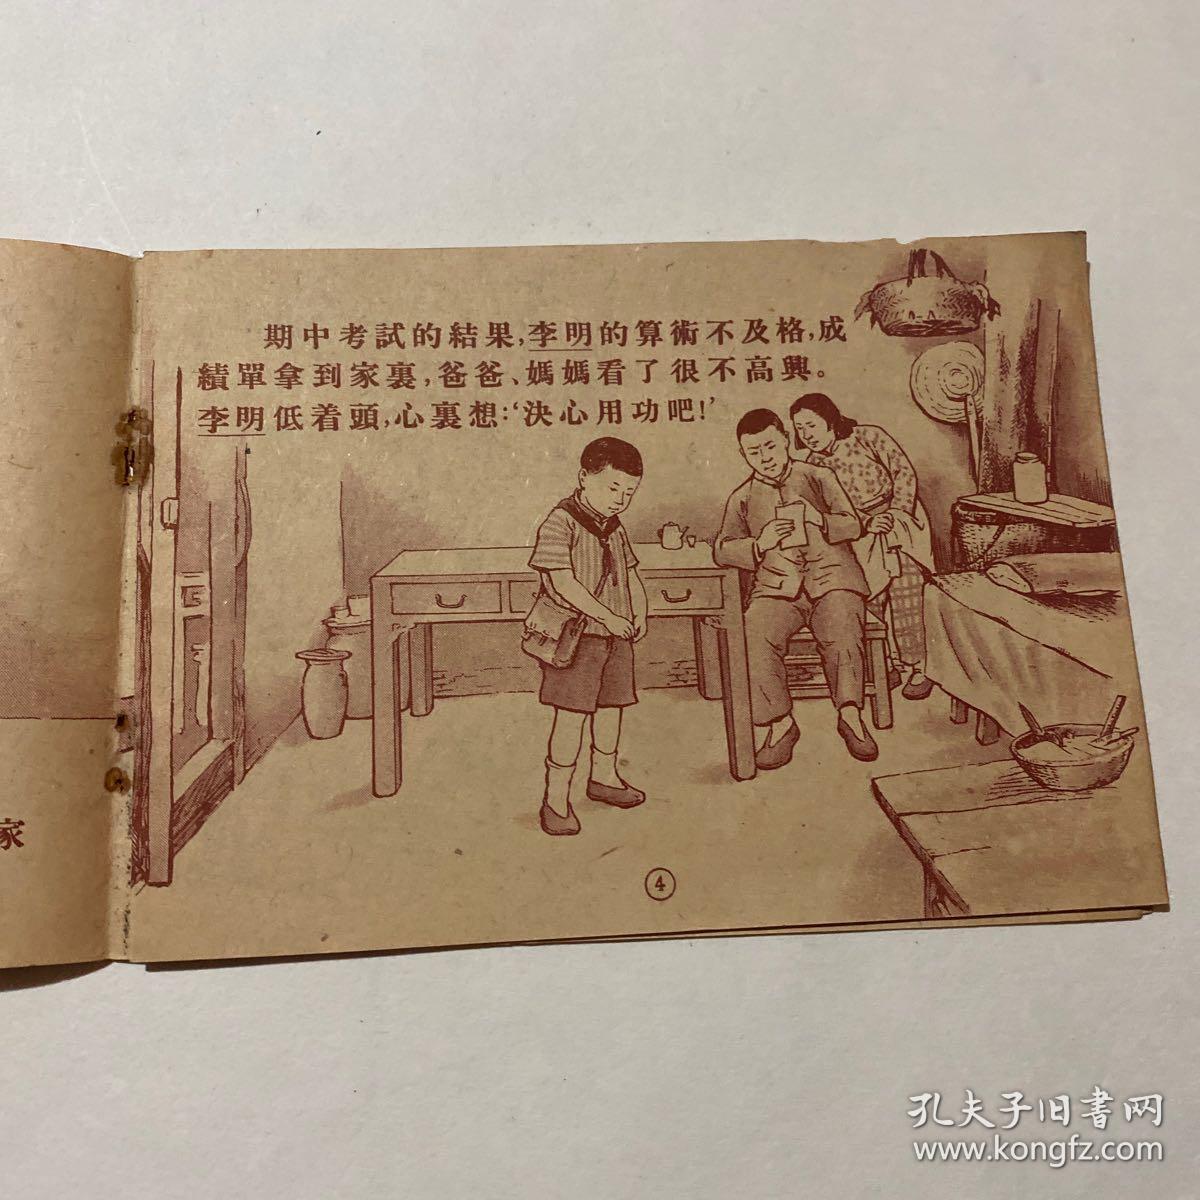 期中考試的結果，李明的算術不及格，成
績單拿到家裏，爸爸、媽媽看了很不高興。
李明低着頭，心裏想：‘決心用功吧！’
家
4
孔夫子旧書网
www.kongfz.com